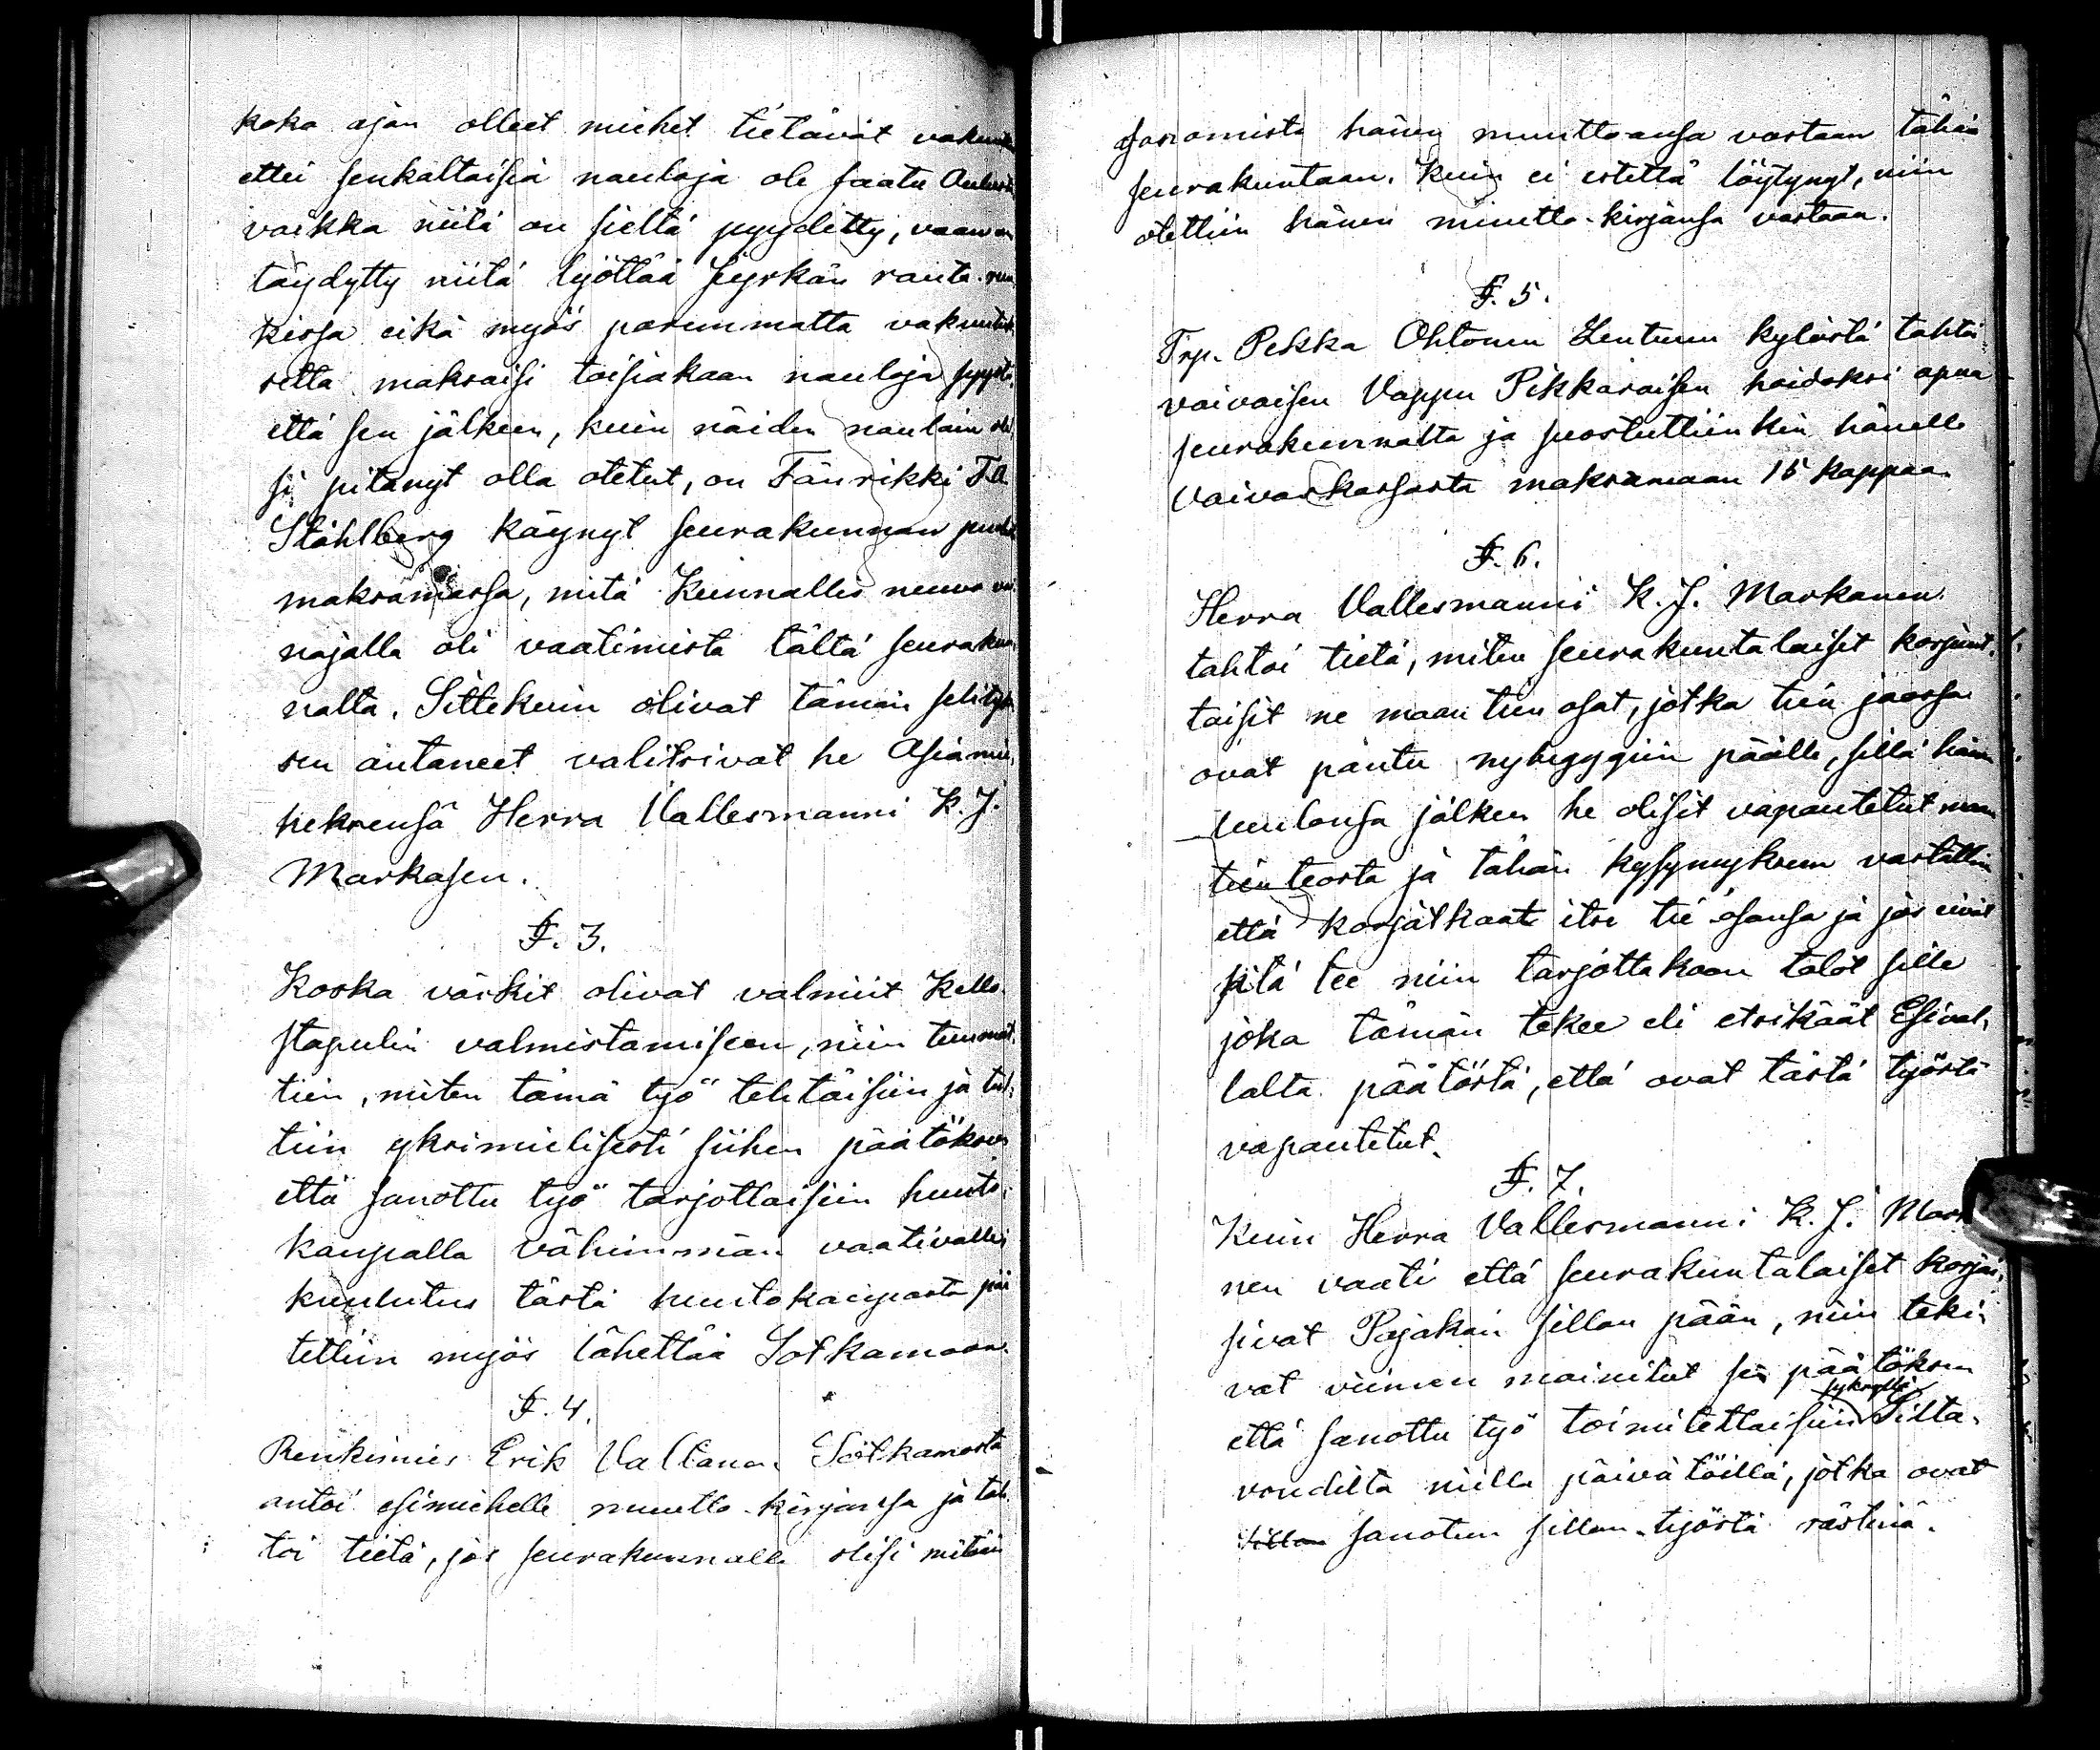 koko ajan olleet miehet tietävät
ettei senkaltaisia nauloja ole saatu
vaikka niitä on sieltä pyydetty, vaan on
täydytty niitä työttää Jyrkän rauta-
kissa eikä myös paremmatta
setta maksaisi toisiakaan nauloja
että sen jälkeen, kuin näiden naulain
si pitänyt olla otetut, on Fänrikki F.A.
Ståhlberg käynyt seurakunnan
maksamassa, mitä Kunnallis neuvo
najalla oli vaatimista tältä seurakun,
nalta. Sittekuin olivat tämän selityk
sen antaneet valitsivat he Asiamie,
heksensä Herra Vallesmanni K. J.
Markasen.
§. 3.
Koska värkit olivat valmiit Kello-
stapulin valmistamiseen, niin tuumat,
tiin, miten tämä työ tehtäisiin ja tul,
tiin yksimielisesti siihen päätöksen
että sanottu työ tarjottaisiin huuto,
kaupalla vähimmän vaativalle,
kuulutus tästä huutokaupasta pää
tettiin myös lähettää Sotkamoon.
§. 4.
Renkimies Erik Valtanen Sotkamosta
antoi esimiehelle muutto-kirjansa ja tah,
toi tietä, jos seurakunnalle olisi mitään
sanomista hänen muuttoansa vastaan tähän
seurakuntaan. Kuin ei estettä löytynyt, niin
otettiin hänen muutto-kirjansa vastaan.
§. 5.
Trp. Pekka Ohtonen Lentuan kylästä tahtoi
vaivaisen Vappu Pikkaraisen hoidoksi apua
seurakunnalta ja suostuttiinkin hänelle
Vaivaskassasta maksamaan 15 kappaa.
§. 6.
Herra Vallesmanni K. J. Markanen
tahtoi tietä, miten seurakuntalaiset korjuut,
taisit ne maantien osat, jotka tien jaossa
ovat pantu nybyggyin päälle, sillä hänen
luulonsa jälken he olisit vapautetut maan
tien teosta ja tähän kysymykseen vastattiin
että korjatkaat itse tie osansa ja jos eivät
sitä tee niin tarjottakoon talot sille
joka tämän tekee eli etsikäät Esival,
lalta päätöstä, että ovat tästä työstä
vapautetut.
§. 7.
Kuin Herra Vallesmanni K. J. Marka
nen vaati että seurakuntalaiset korjai,
sivat Pajakan sillan pään, niin teki,
vat viimen mainitut sen päätöksen
että sanottu työ toimitettaisiin syksyllä Silta-
voudilta niillä päivätöillä, jotka ovat
sillan sanotun sillan-työstä rästinä.